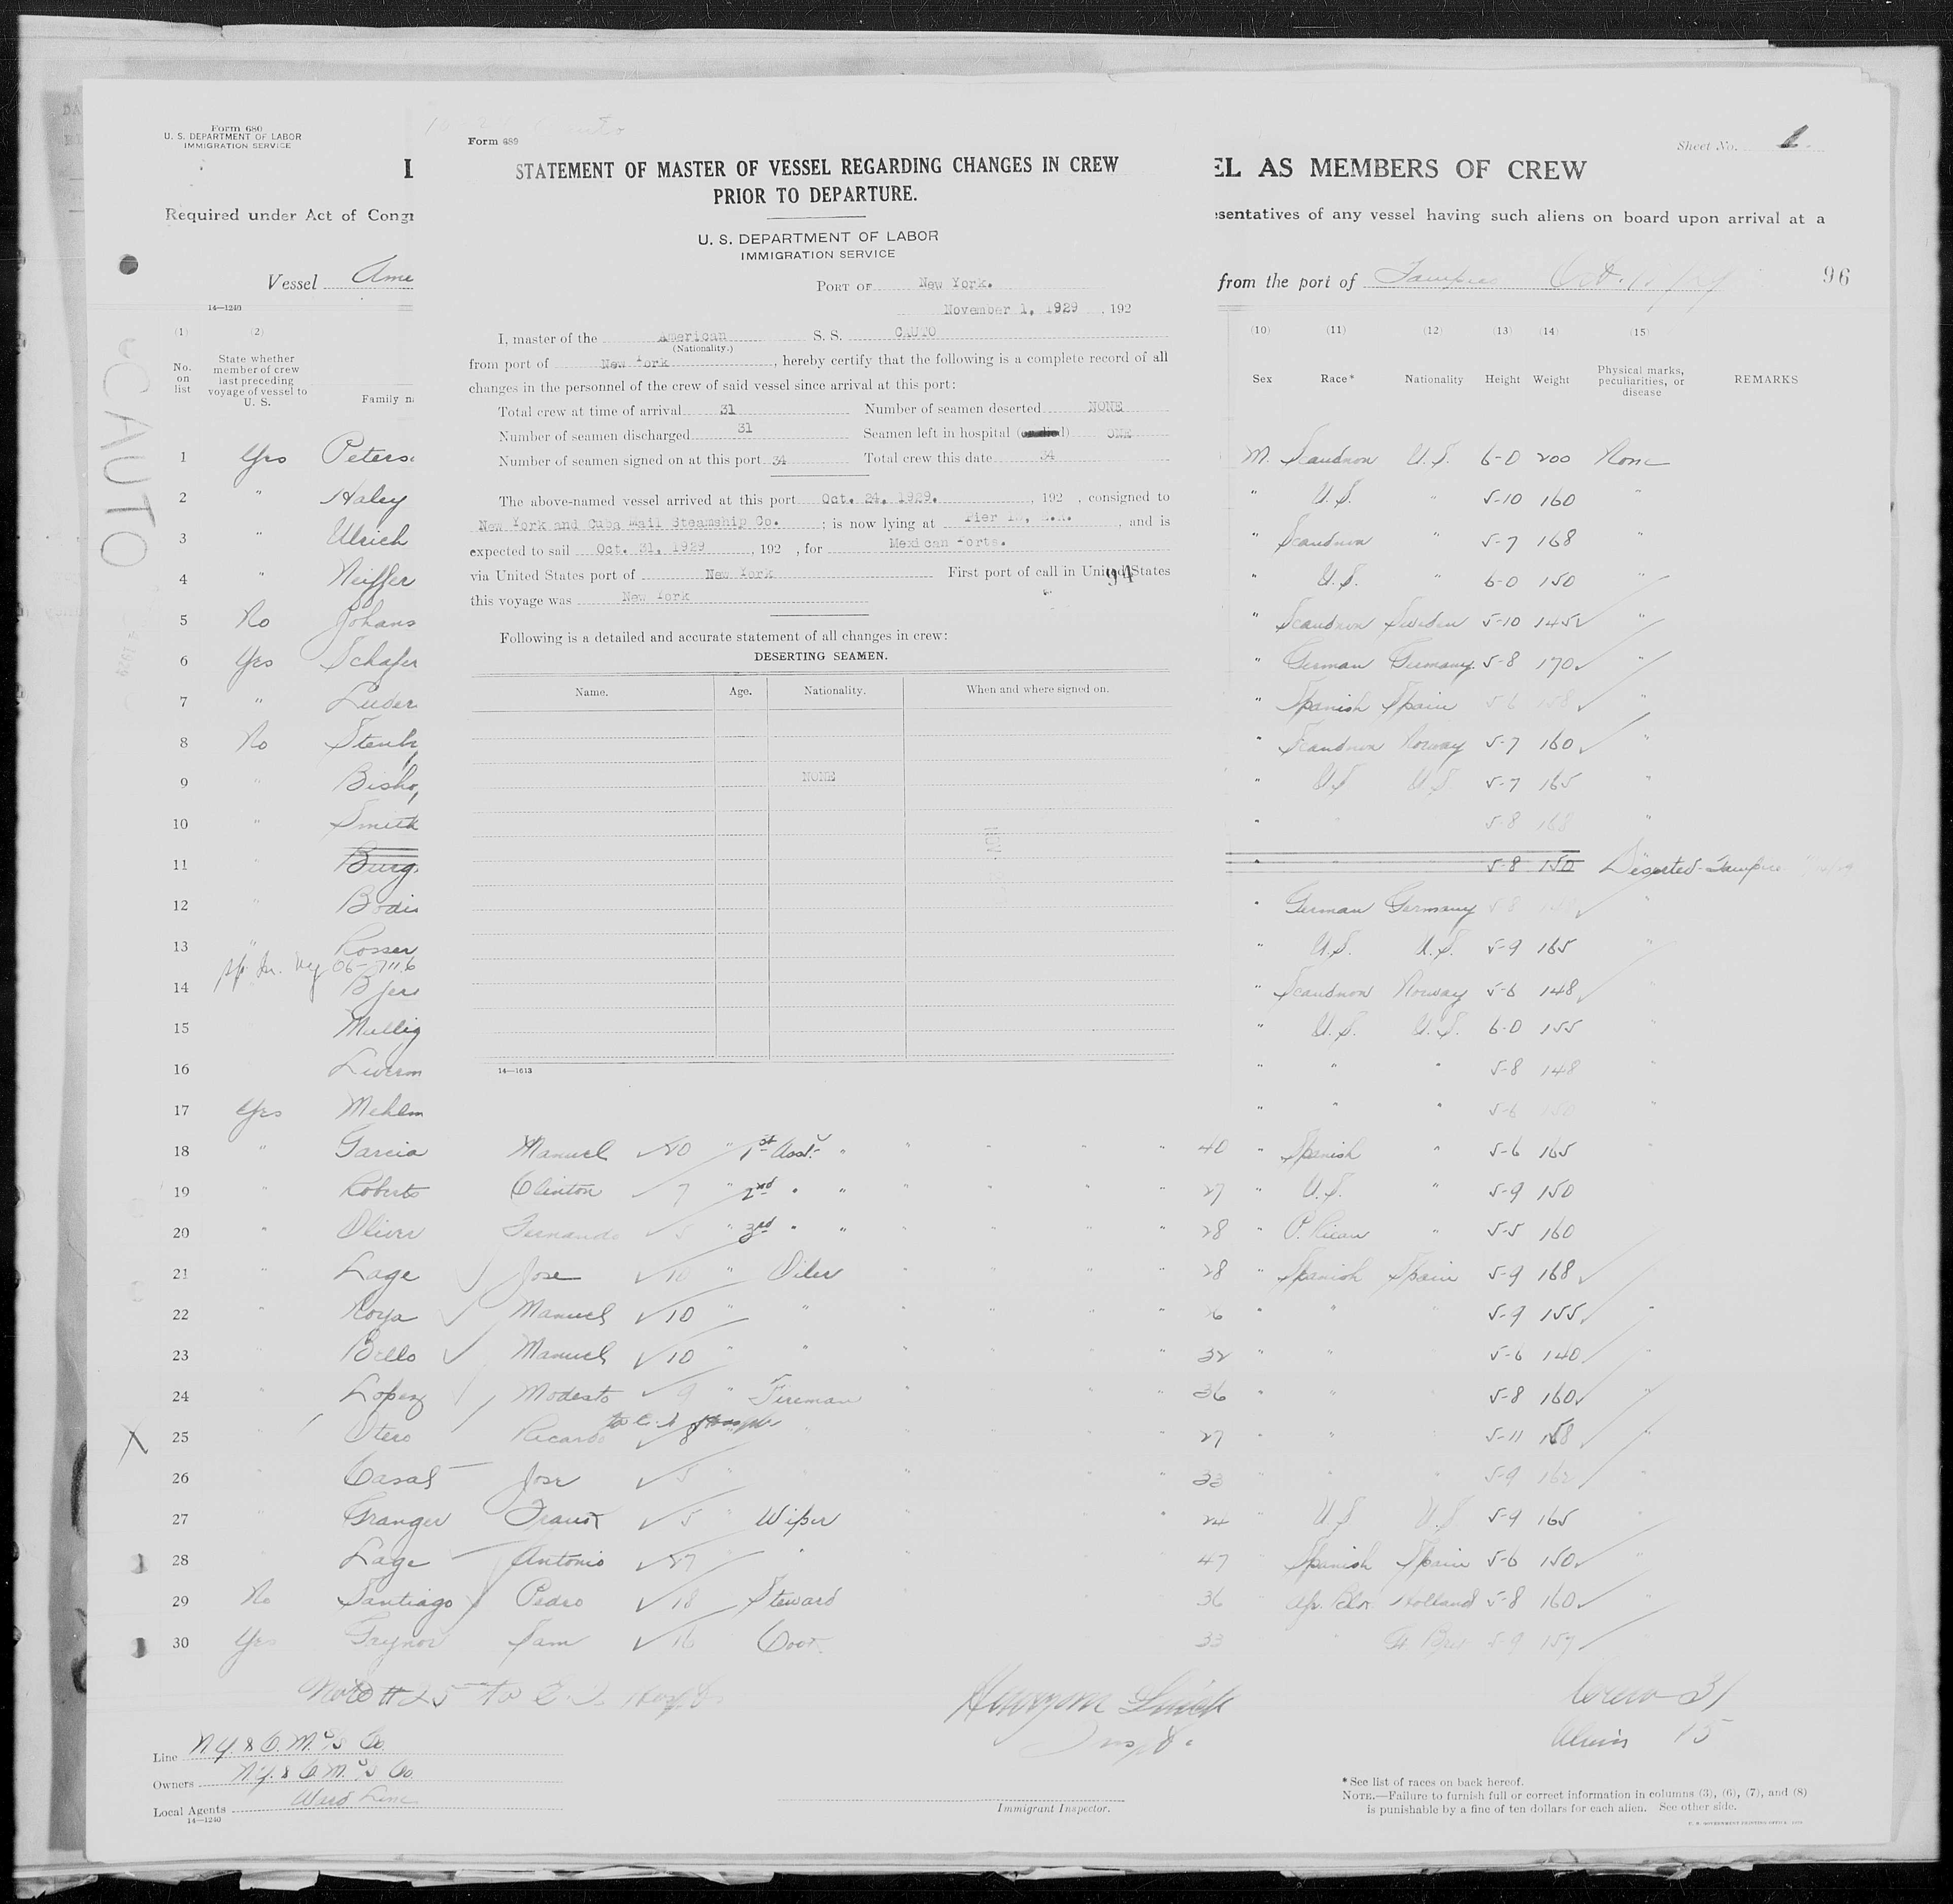 Form 680
U. S. DEPARTMENT OF LABOR
IMMIGRATION SERVICE
Required under Act of Congr
Vessel Ame
14—1240
Form 689
STATEMENT OF MASTER OF VESSEL REGARDING CHANGES IN CREW
PRIOR TO DEPARTURE.
U. S. DEPARTMENT OF LABOR
IMMIGRATION SERVICE
PORT OF New York.
November 1, 1929, 192
I, master of the American S. S. CAUTO
(Nationality.)
from port of New York, hereby certify that the following is a complete record of all
changes in the personnel of the crew of said vessel since arrival at this port:
Total crew at time of arrival 31 Number of seamen deserted NONE
Number of seamen discharged 31 Seamen left in hospital (or died) ONE
Number of seamen signed on at this port 34 Total crew this date 34
The above-named vessel arrived at this port Oct. 24, 1929., 192 , consigned to
New York and Cuba Mail Steamship Co. ; is now lying at Pier , and is
expected to sail Oct. 31, 1929, 192 , for Mexican Ports.
via United States port of New York First port of call in United States
94
this voyage was New York
Following is a detailed and accurate statement of all changes in crew:
DESERTING SEAMEN.
Name. Age. Nationality. When and where signed on.
NONE
14—1613
Sheet No. 1
EL AS MEMBERS OF CREW
esentatives of any vessel having such aliens on board upon arrival at a
from the port of Tampico Oct.
96
CAUTO
(1) (2) (10) (11) (12) (13) (14) (15)
No. on list
State whether member of crew last preceding voyage of vessel to U. S.
Family na
Sex Race* Nationality Height Weight Physical marks, peculiarities, or disease REMARKS
1 Yes Peters M. Scandnvn U.S. 6-0 200 None
2 " Haley " U.S. " 5-10 160 "
3 " Ulrich " Scandnvn " 5-7 168 "
4 " Neiffer " U.S. " 6-0 150 "
5 No Johans " Scandnvn Sweden 5-10 145 "
6 Yes Schafer " German Germany 5-8 170 "
7 " Luder " Spanish Spain 5-6 158 "
8 No Stenbr " Scandnvn Norway 5-7 160 "
9 " Bishop " U.S. U.S. 5-7 165 "
10 " Smith " " 5-8 168 "
11 " Burg " 5-8 150 Deserted Tampico
12 " Bodi " German Germany 5-8 "
13 " Rosser " U.S. U.S. 5-9 165 "
14 Bjer " Scandnvn Norway 5-6 148
15 Mullig " U.S. U.S. 6-0 155
16 Liverm " " " 5-8 148
17 Yes Mehlm " " " 5-6 150
18 " Garcia Manuel 20 " 1st Asst. " 40 " Spanish " 5-6 165
19 " Roberts Clinton 7 " 2nd " " 27 " U.S. " 5-9 150
20 " Oliver Fernando 5 " 3rd " " 28 " P. Rican " 5-5 160
21 " Lage Jose 10 " Oiler 28 " Spanish Spain 5-9 168
22 Roya Manuel 10 " " " " 5-9 155 "
23 Bello Manuel 10 " " 32 " " 5-6 140
24 " Lopez Modesto 9 " Fireman 36 " " 5-8 160 "
25 Otero Ricardo 8 27 " " 5-11 "
26 Casal Jose 5 " 33 5-9
27 Granger Frank 5 " Wiper 24 " U.S. U.S. 5-9 165
28 Lage Antonio 27 " 47 " Spanish Spain 5-6 150 "
29 No Santiago Pedro 18 Steward 36 Afr. Blk Holland 5-8 160
30 Yes Traynor Sam 16 Cook 33 " Gt Brit 5-9 157
Note #25 to E. I. Hosp.
Crew 31
Aliens 15
Line N.Y. & C. M. S/S Co.
Owners N.Y. & C. M. S/S Co.
Local Agents Ward Line
14—1240
Immigrant Inspector.
* See list of races on back hereof.
NOTE.—Failure to furnish full or correct information in columns (3), (6), (7), and (8)
is punishable by a fine of ten dollars for each alien. See other side.
U. S. GOVERNMENT PRINTING OFFICE